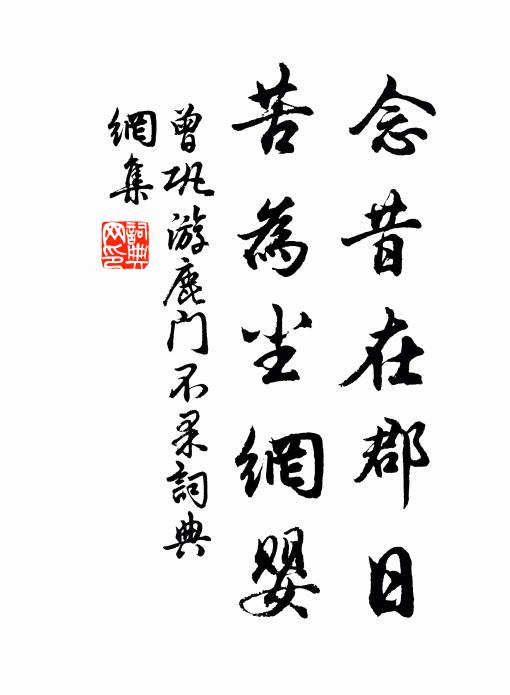 念昔在郡日
苦為尘網嬰
曾巩游鹿门不果詞典
網集
詞典
网印